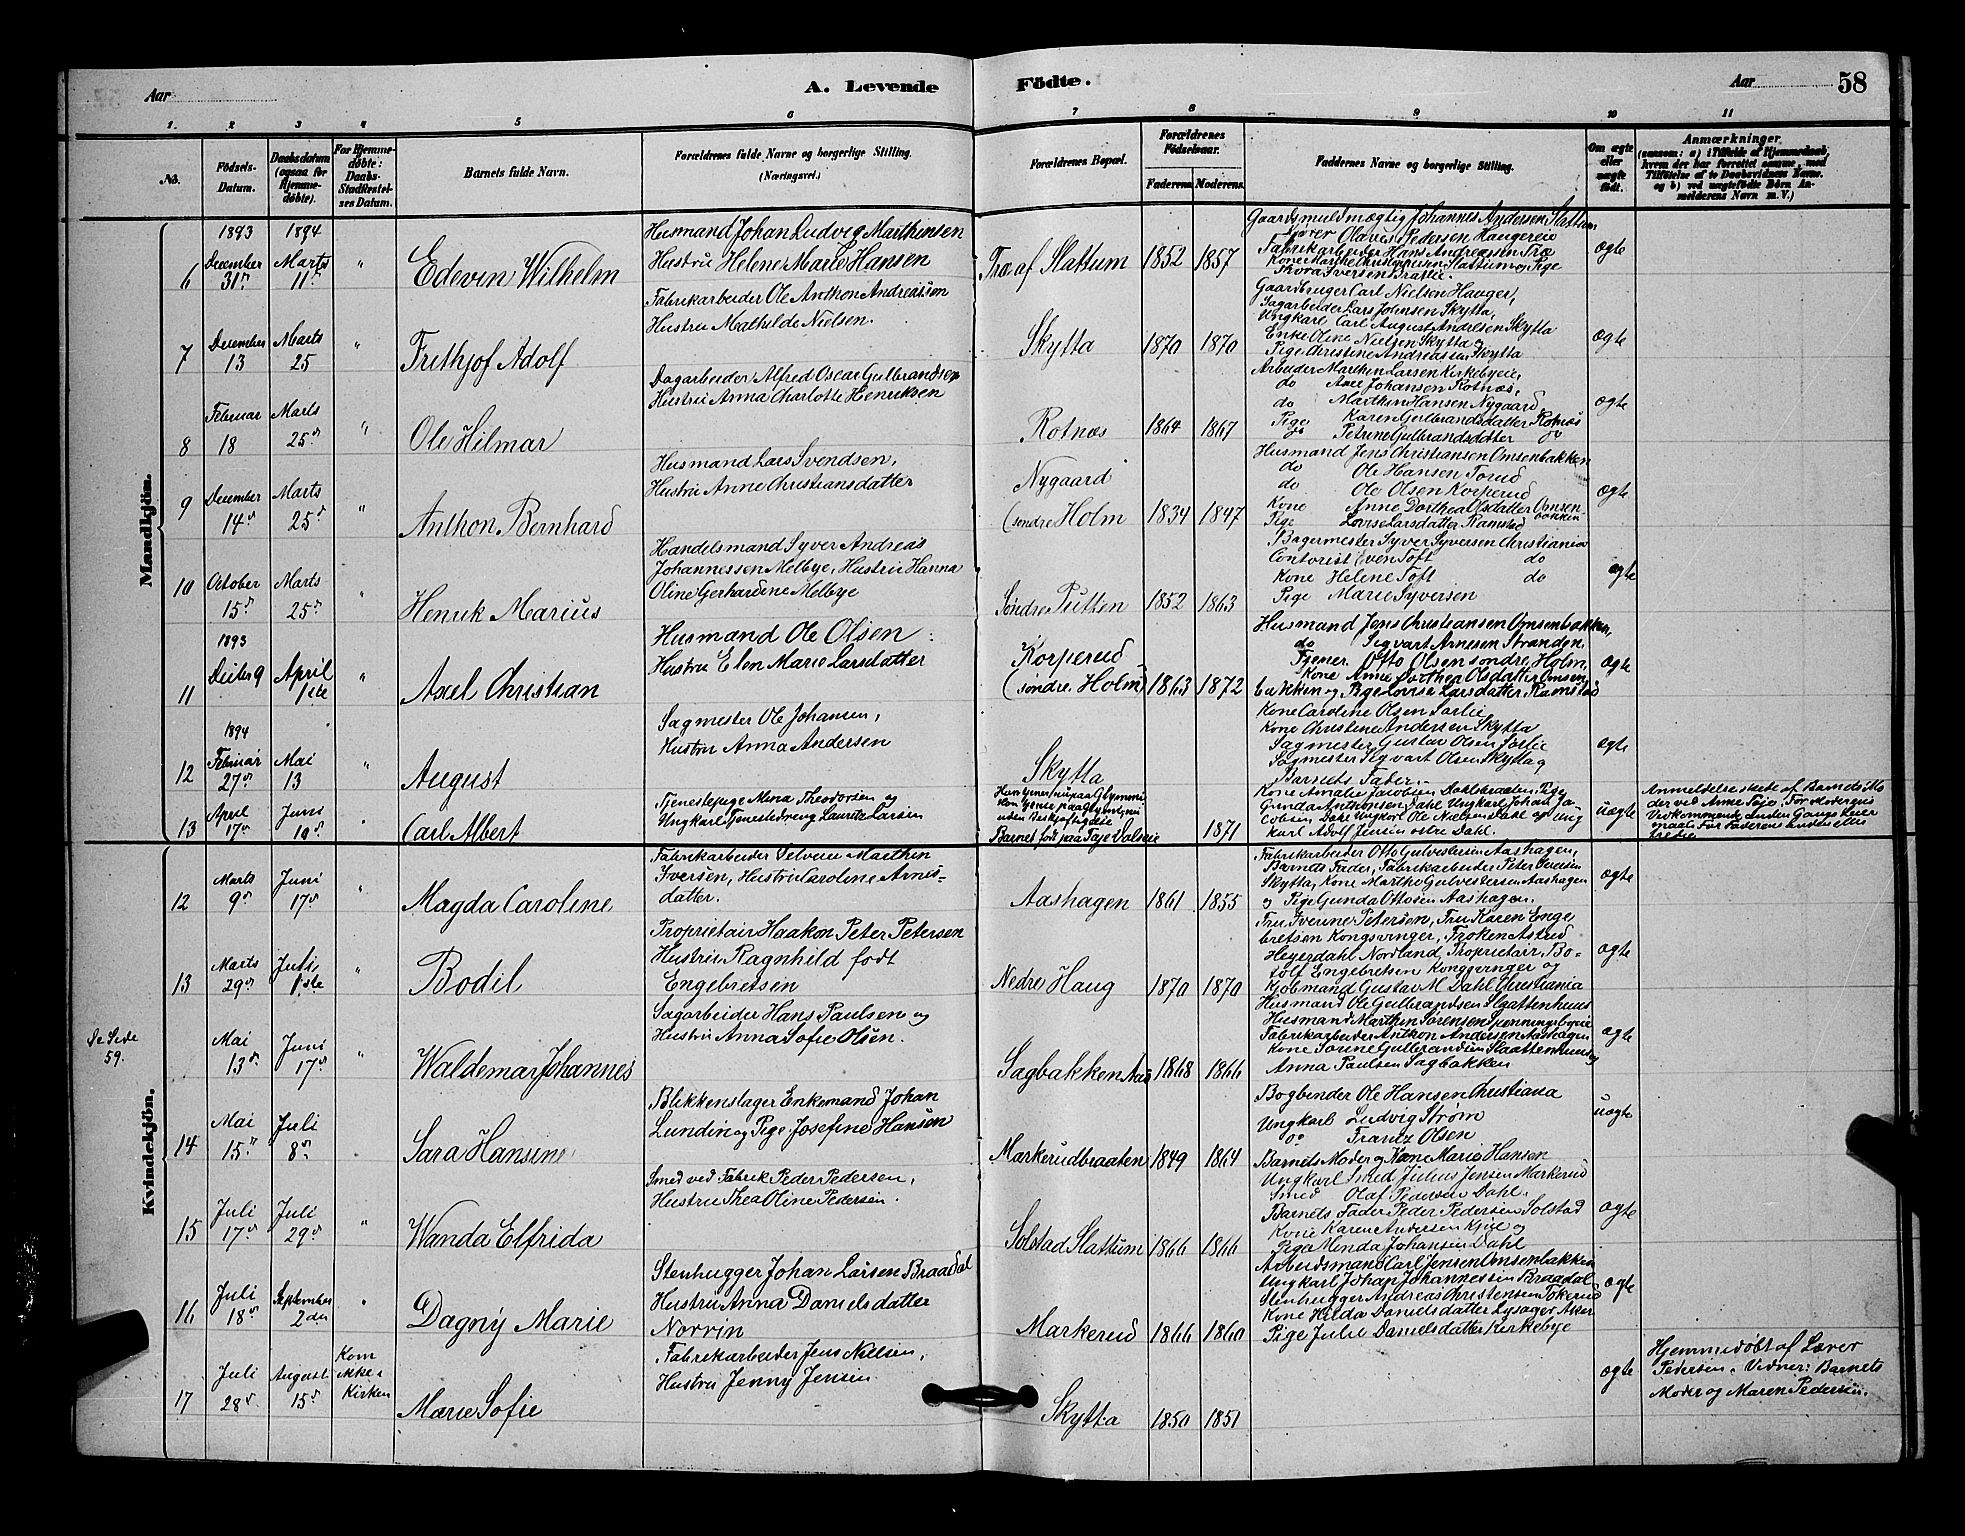 Aar
A. Levende Födte.
Aar 58
1. 2 3 4 5 6 7 8 9 10 11
No.
Födsels-Datum.
Daabsdatum (ogsaa for Hjemmedöbte).
For Hjemmedöbte: Daabs-Stadfæstelses Datum.
Barnets fulde Navn.
Forældrenes fulde Navne og borgerlige Stilling. (Næringsvei.)
Forældrenes Bopæl.
Forældrenes Födselsaar.
Faderens. Moderens.
Faddernes Navne og borgerlige Stilling.
Om ægte eller uægte födt.
Anmærkninger
(saasom: a) i Tilfælde af Hjemmedaab, hvem der har forrettet samme, med Tilföielse af to Daabsvidners Navne, og b) ved uægtefödte Börn Anmelderens Navn m.V.)
Mandkjön.
6 1893 December 31te 1894 Marts 11te " Edevin Wilhelm
Husmand Johan Ludvig Marthinsen
Hustru Helene Marie Hansen
Træ af Slattum 1852 1857
Gaardsmuldmægtig Johannes Andersen, Slattum
Olavus Pedersen Haugereie
Fabrikarbeider Hans Andreassen Træ
Slattum og Pige
Thora Iversen Braslie
ægte
7 December 13 Marts 25 " Frithjof Adolf
Fabrikarbeider Ole Anthon Andreassen
Hustru Mathilde Nielsen.
Skytta 1870 1870
Gaardbruger Carl Nielsen Hauger,
Sagarbeider Lars Johnsen Skytta,
Ungkarl Carl August Andresen Skytta
Enke Oline Nielsen Skytta og
Pige Christine Andreassen Skytta
ægte
8 Februar 18 Marts 25de " Ole Hilmar
Dagarbeider Alfred Oscar Gulbrandsen
Hustru Anna Charlotte Henriksen
Rotnæs 1864 1867
Arbeider Marthin Larsen Kirkebyeie,
do Axel Johansen Rotnæs,
do Marthin Hansen Nygaard
Pige Karen Gulbrandsdatter Rotnæs
do Petrine Gulbrandsdatter do
ægte
9 December 14de Marts 25de " Anthon Bernhard
Husmand Lars Svendsen,
Hustru Anne Christiansdatter
Nygaard
(søndre Holm 1834 1847
Husmand Jens Christiansen Omsenbakken
do Ole Hansen Torud
do Ole Olsen Korperud
Kone Anne Dorthea Olsdatter Omsenbakken
Pige Lovise Larsdatter Ramstad
ægte
10 October 15de Marts 25de " Henrik Marius
Handelsmand Syver Andreas
Johannessen Melbye, Hustru Hanna
Oline Gerhardine Melbye
Søndre Putten 1852 1863
Bagermester Syver Syversen Christiania
Contorist Even Toft do
Kone Helene Toft do
Pige Marie Syversen
ægte
11 1893 9 April 1ste " Axel Christian
Husmand Ole Olsen
Hustru Elen Marie Larsdatter
Korperud
(søndre Holm) 1863 1872
Husmand Jens Christiansen Omsenbakken,
do Sigvart Arnesen Stranden
Tjener Otto Olsen søndre Holm,
Kone Anne Dorthea Olsdatter Omsen
bakken og Pige Lovise Larsdatter Ramstad
ægte
12 1894 Februar 27de Mai 13 " August
Sagmester Ole Johansen,
Hustru Anna Andersen
Skytta
Kone Caroline Olsen Sørlie
Kone Christine Andersen Skytta
Sagmester Gustav Olsen Sørlie
Sagmester Sigvart Olsen Skytta og
Barnets Fader.
ægte
13 April 17de Juni 10de Carl Albert
Tjenestepige Mina Theodorsen og
Ungkarl Tjenestedreng Lauritz Larsen
1871
Barnet født paa
Kone Amalie Jacobsen Dahlsbraaten, Pige
Gunda Anthonsen Dahl Ungkarl Johan Ja-
cobsen Dahl Ungkarl Ole Nielsen Dahl og Ung
karl Adolf Jensen østre Dahl.
uægte
Anmeldelse skede af Barnets Mo
der ved Anne Teie. For Moderens
Vedkommende anden Gangs Leier
maal, for Faderens
Kvindekjön.
12 Marts 9de Juni 17de " Magda Caroline
Fabrikarbeider Marthin
Iversen, Hustru Caroline Arnes-
datter.
Aashagen 1861 1855
Fabrikarbeider Otto Gulvestersen Aashagen,
Barnets Fader, Fabrikarbeider Peter Iversen
Skytta, Kone Marthe Gulvestersen Aashagen
og Pige Gunda Ottosen Aashagen.
ægte
13 Marts 29de Juli 1ste " Bodil
Proprietair Haakon Peter Petersen
Hustru Ragnhild født
Engebretsen
Nedre Haug 1870 1870
Fru Iverine Petersen, Fru Karen Enge
bretsen Kongsvinger, Frøken Astrid
Heyerdahl Nordland, Proprietair Bo-
tolf Engebretsen Kongsvinger og
Kjøbmand Gustav M. Dahl Christiania
ægte
Se Side
59.
Mai 13de Juni 17de " Waldemar Johannes
Sagarbeider Hans Paulsen og
Hustru Anna Sofie Olsen.
Sagbakken Aas 1868 1866
Husmand Ole Gulbrandsen Slaattenhuus
Husmand Marthin Sørensen Spenningsbyeie
Fabrikarbeider Anthon Andersen Aashagen
Kone Gulbrandsen Slaattenhuus og
Anna Paulsen Sagbakken
ægte
14 Mai 15de Juli 8de Sara Hansine
Blikkenslager Enkemand Johan
Lundin og Pige Josefine Hansen
Markerudbraaten 1849 1864
Bogbinder Ole Hansen Christiana
Ungkarl Ludvig Strøm
do Frantz Olsen
Barnets Moder og Kone Marie Hansen
uægte
15 Juli 17de Juli 29de " Wanda Elfrida
Smed ved Fabrik Peder Pedersen,
Hustru Thea Oline Pedersen.
Solstad Slattum 1866 1866
Ungkarl Smed Julius Jensen Markerud
Smed Olaf Pedersen Dahl.
Barnets Fader Peder Pedersen Solstad
Kone Karen Andersen og
Pige Minda Johansen Dahl
ægte
16 Juli 18de September 2den " Dagny Marie
Stenhugger Johan Larsen Braadal
Hustru Anna Danielsdatter
Norrin
Markerud 1866 1860
Arbeidsmand Carl Jensen Omsenbakken
Ungkarl Johan Johannessen Braadal
Stenhugger Andreas Christensen Tokerud
Kone Hilda Danielsdatter Lysager Aker
Pige Julie Danielsdatter Kirkebye
ægte
17 Juli 28de August 15de Kom ikke i Kirken Marie Sofie
Fabrikarbeider Jens Nielsen,
Hustru Jenny Jensen
Skytta 1850 1851
ægte
Hjemmedøbt af Lærer
Pedersen. Vidner: Barnets
Moder og Maren Pedersen.